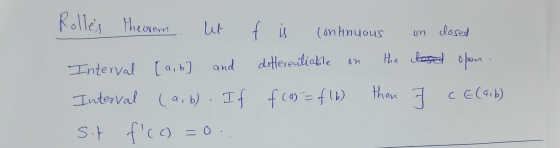 Rolle's Theorem Let f is continuous on closed
Interval [a,b] and differentiable on the closed open.
Interval (a,b). If f(a) = f(b) then ∃ c ∈ (a,b)
S.t f'(c) = 0.